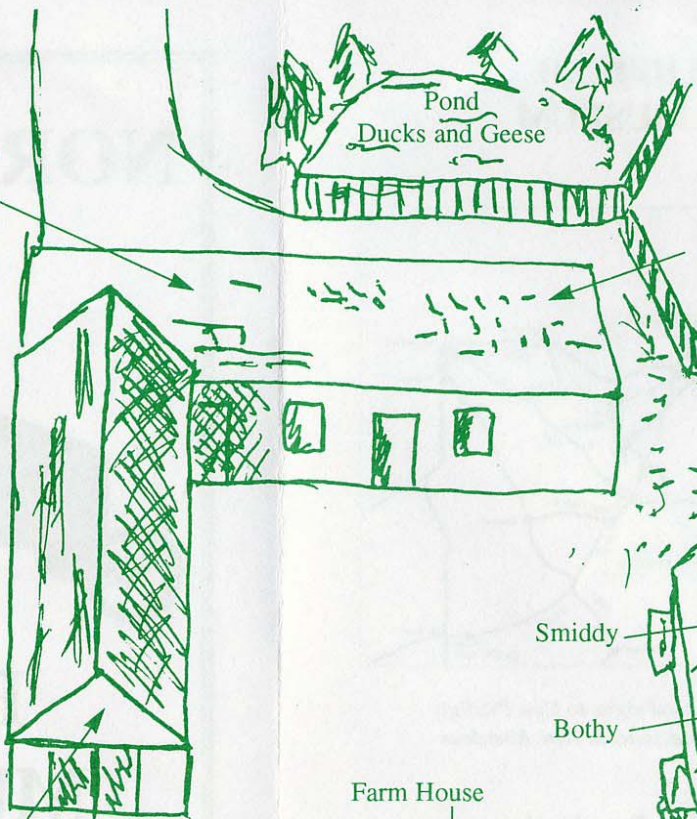 Pond
Ducks and Geese
Smiddy
Bothy
Farm House